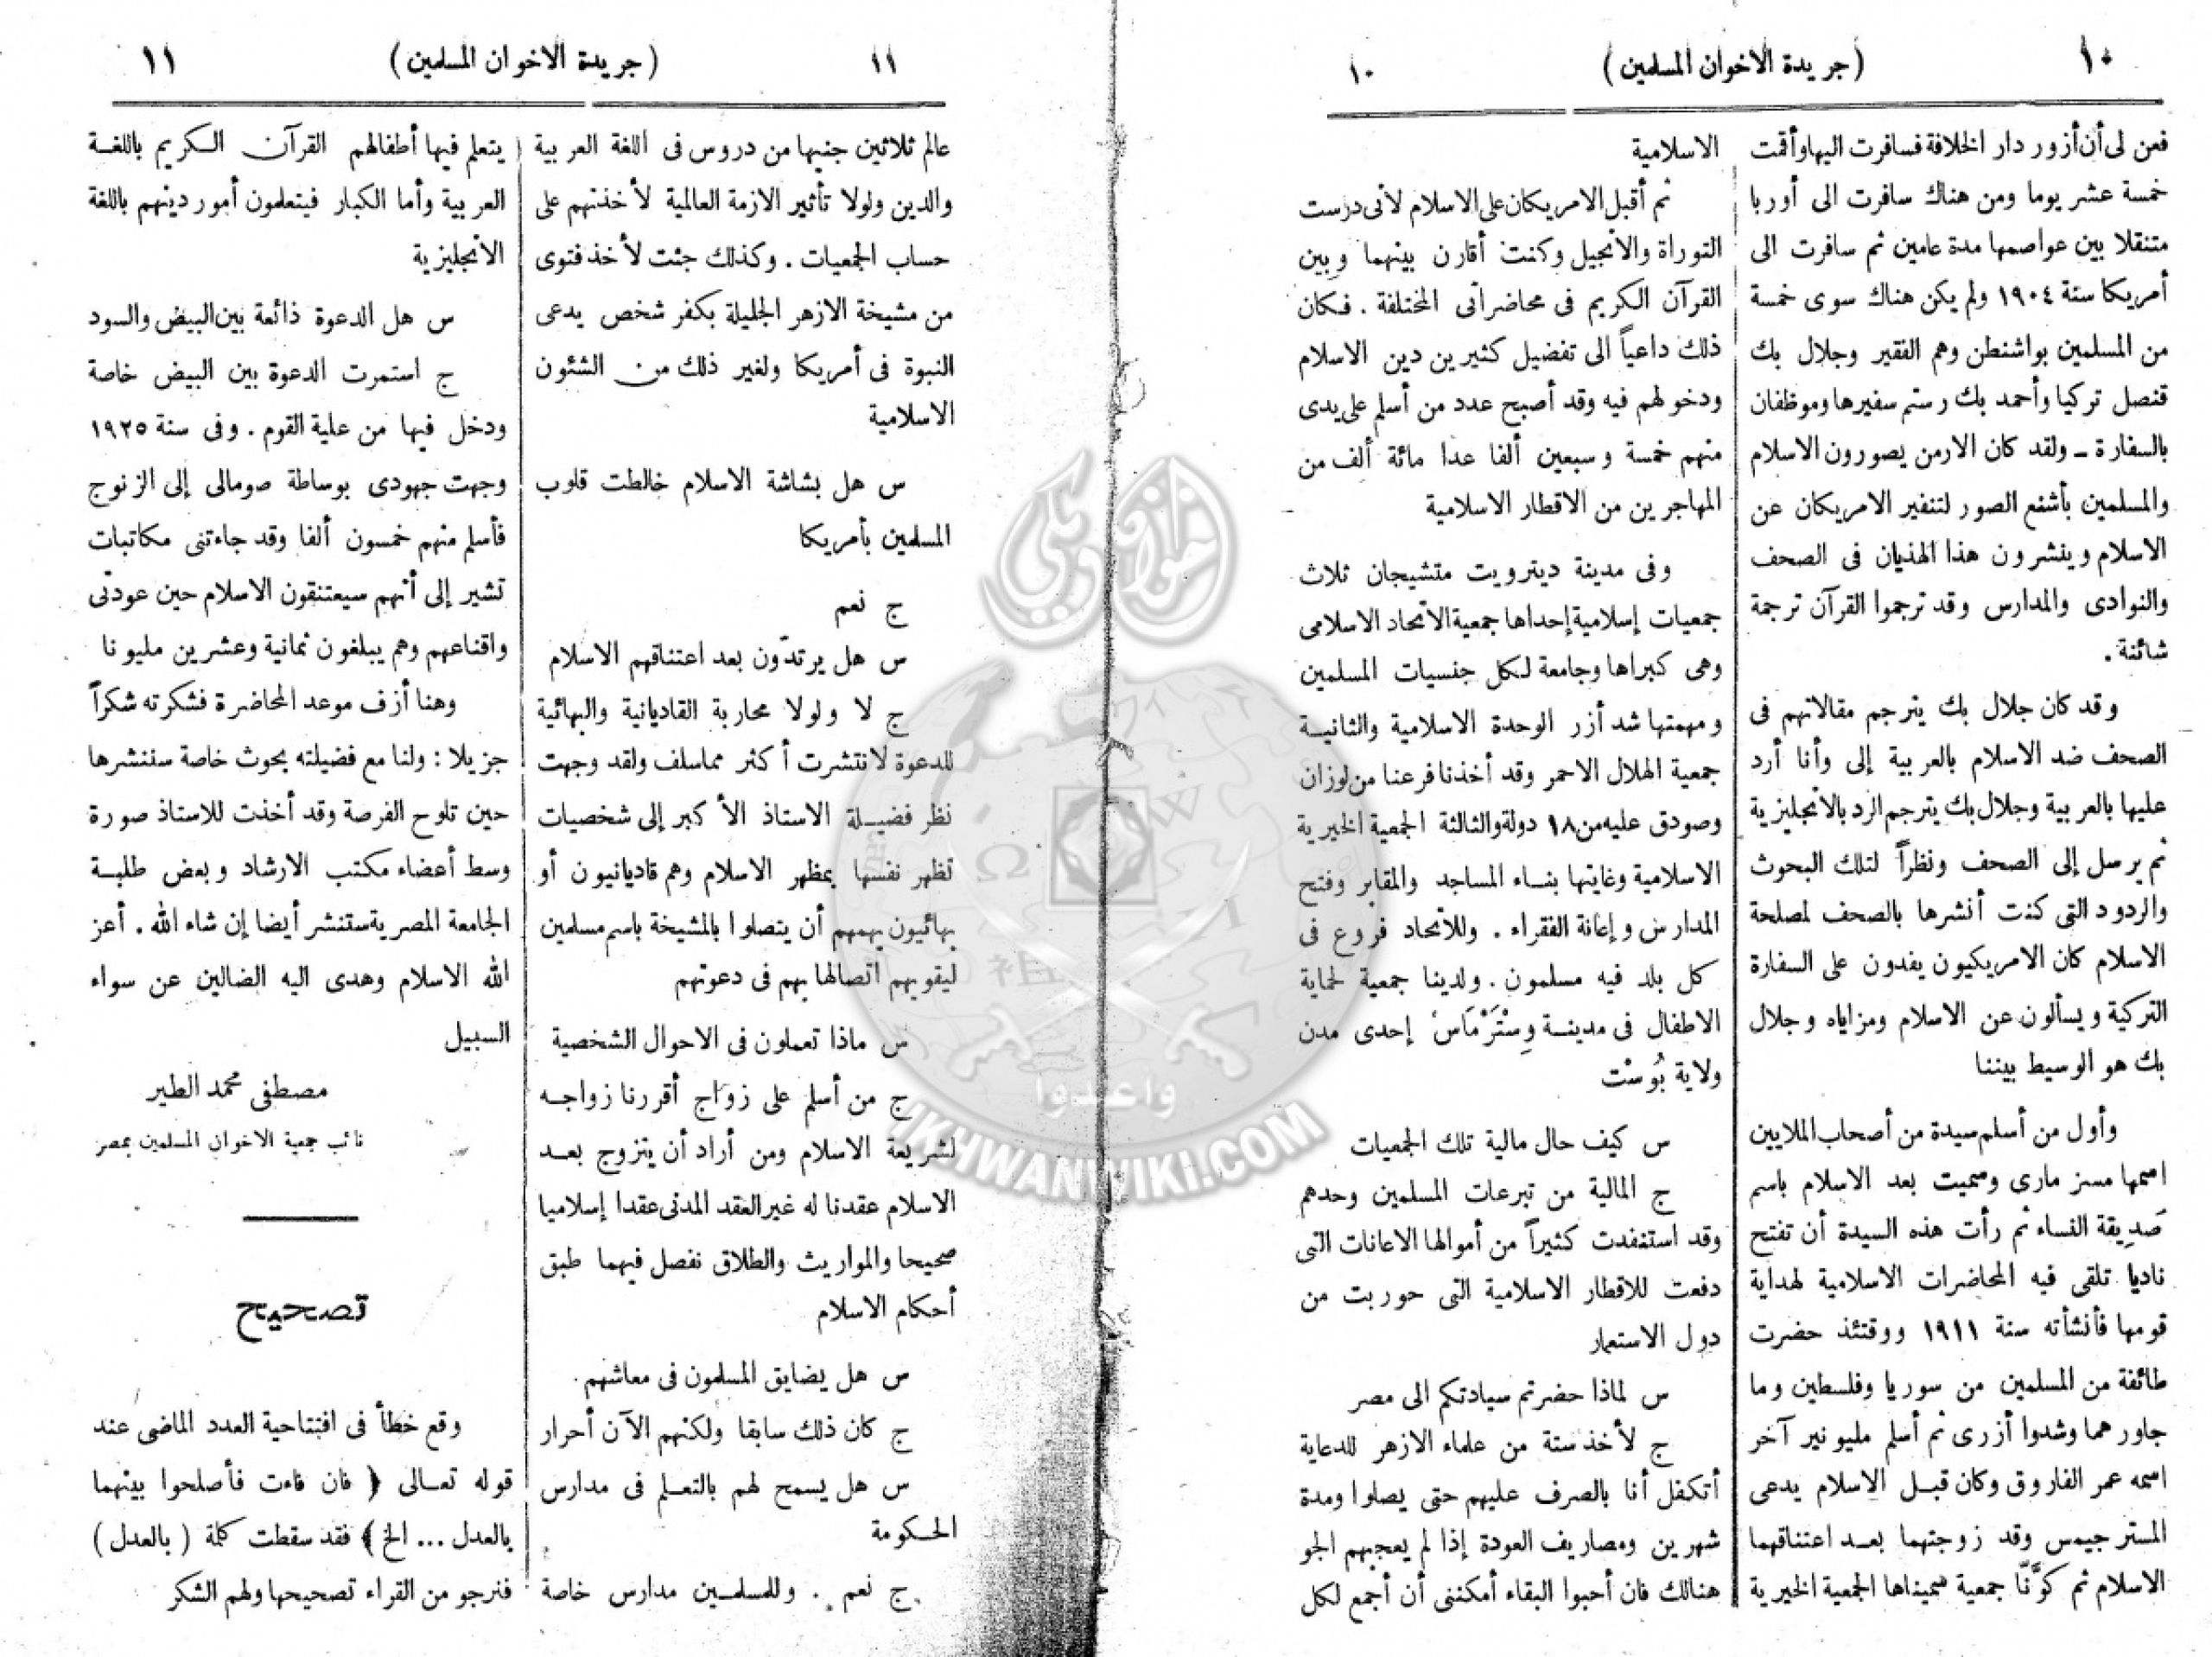 ١٠
(جريدة الاخوان المسلمين)
١٠
فعن لى أن أزور دار الخلافة فسافرت اليها وأقمت
خمسة عشر يوما ومن هناك سافرت الى أوربا
متنقلا بين عواصمها مدة عامين ثم سافرت الى
أمريكا سنة ١٩٠٤ ولم يكن هناك سوى خمسة
من المسلمين بواشنطن وهم الفقير وجلال بك
قنصل تركيا وأحمد بك رستم سفيرها وموظفان
بالسفارة - ولقد كان الارمن يصورون الاسلام
والمسلمين بأشفع الصور لتنفير الامريكان عن
الاسلام وينشرون هذا الهذيان فى الصحف
والنوادى والمدارس وقد ترجموا القرآن ترجمة
شائنة .
وقد كان جلال بك يترجم مقالاتهم فى
الصحف ضد الاسلام بالعربية إلى وأنا أرد
عليها بالعربية وجلال بك يترجم الرد بالانجليزية
ثم يرسل إلى الصحف ونظراً لتلك البحوث
والردود التى كنت أنشرها بالصحف لمصلحة
الاسلام كان الامريكيون يفدون على السفارة
التركية ويسألون عن الاسلام ومزاياه وجلال
بك هو الوسيط بيننا
وأول من أسلم سيدة من أصحاب الملايين
اسمها مسز مارى وسميت بعد الاسلام باسم
صَدِيقة النساء ثم رأت هذه السيدة أن تفتح
ناديا تلقى فيه المحاضرات الاسلامية لهداية
قومها فأنشأته سنة ١٩١١ ووقتئذ حضرت
طائفة من المسلمين من سوريا وفلسطين وما
جاورهما وشدوا أزرى ثم أسلم مليونير آخر
اسمه عمر الفاروق وكان قبل الاسلام يدعى
المستر جيمس وقد زوجتهما بعد اعتناقهما
الاسلام ثم كوَّنّا جمعية سميناها الجمعية الخيرية
الاسلامية
ثم أقبل الامريكان على الاسلام لأنى درست
التوراة والانجيل وكنت أقارن بينهما وبين
القرآن الكريم فى محاضراتى المختلفة . فكان
ذلك داعياً الى تفضيل كثيرين دين الاسلام
ودخولهم فيه وقد أصبح عدد من أسلم على يدى
منهم خمسة وسبعين ألفا عدا مائة ألف من
المهاجرين من الاقطار الاسلامية
وفى مدينة ديترويت متشيجان ثلاث
جمعيات إسلامية إحداها جمعية الاتحاد الاسلامى
وهى كبراها وجامعة لكل جنسيات المسلمين
ومهمتها شد أزر الوحدة الاسلامية والثانية
جمعية الهلال الاحمر وقد أخذنا فرعنا من لوزان
وصودق عليه من ١٨ دولة والثالثة الجمعية الخيرية
الاسلامية وغايتها بناء المساجد والمقابر وفتح
المدارس وإعانة الفقراء . وللاتحاد فروع فى
كل بلد فيه مسلمون . ولدينا جمعية لحماية
الاطفال فى مدينة وِسْتَرْمَاسْ إحدى مدن
ولاية بُوسْت
س كيف حال مالية تلك الجمعيات
ج المالية من تبرعات المسلمين وحدهم
وقد استنفدت كثيراً من أموالها الاعانات التى
دفعت للاقطار الاسلامية التى حوربت من
دول الاستعمار
س لماذا حضرتم سيادتكم الى مصر
ج لأخذ ستة من علماء الازهر للدعاية
أتكفل أنا بالصرف عليهم حتى يصلوا ومدة
شهرين ومصاريف العودة إذا لم يعجبهم الجو
هنالك فان أحبوا البقاء أمكننى أن أجمع لكل
١١
(جريدة الاخوان المسلمين)
١١
عالم ثلاثين جنيها من دروس فى اللغة العربية
والدين ولولا تأثير الازمة العالمية لأخذتهم على
حساب الجمعيات . وكذلك جئت لأخذ فتوى
من مشيخة الازهر الجليلة بكفر شخص يدعى
النبوة فى أمريكا ولغير ذلك من الشئون
الاسلامية
س هل بشاشة الاسلام خالطت قلوب
المسلمين بأمريكا
ج نعم
س هل يرتدّون بعد اعتناقهم الاسلام
ج لا ولولا محاربة القاديانية والبهائية
للدعوة لانتشرت أكثر مما سلف ولقد وجهت
نظر فضيلة الاستاذ الأكبر إلى شخصيات
تظهر نفسها بمظهر الاسلام وهم قاديانيون أو
بهائيون يهمهم أن يتصلوا بالمشيخة باسم مسلمين
ليقويهم اتصالها بهم فى دعوتهم
س ماذا تعملون فى الاحوال الشخصية
ج من أسلم على زواج أقررنا زواجه
لشريعة الاسلام ومن أراد أن يتزوج بعد
الاسلام عقدنا له غير العقد المدنى عقدا إسلاميا
صحيحا والمواريث والطلاق نفصل فيهما طبق
أحكام الاسلام
س هل يضايق المسلمون فى معاشهم.
ج كان ذلك سابقا ولكنهم الآن أحرار
س هل يسمح لهم بالتعلم فى مدارس
الحكومة
ج نعم . وللمسلمين مدارس خاصة
يتعلم فيها أطفالهم القرآن الكريم باللغة
العربية وأما الكبار فيتعلمون أمور دينهم باللغة
الانجليزية
س هل الدعوة ذائعة بين البيض والسود
ج استمرت الدعوة بين البيض خاصة
ودخل فيها من علية القوم . وفى سنة ١٩٢٥
وجهت جهودى بوساطة صومالى إلى الزنوج
فأسلم منهم خمسون ألفا وقد جاءتنى مكاتبات
تشير إلى أنهم سيعتنقون الاسلام حين عودتى
واقناعهم وهم يبلغون ثمانية وعشرين مليونا
وهنا أزف موعد المحاضرة فشكرته شكراً
جزيلا : ولنا مع فضيلته بحوث خاصة سننشرها
حين تلوح الفرصة وقد أخذت للاستاذ صورة
وسط أعضاء مكتب الارشاد وبعض طلبة
الجامعة المصرية ستنشر أيضا إن شاء الله . أعز
الله الاسلام وهدى اليه الضالين عن سواء
السبيل
مصطفى محمد الطير
نائب جمعية الاخوان المسلمين بمصر
تصحيح
وقع خطأ فى افتتاحية العدد الماضى عند
قوله تعالى ﴿ فان فاءت فأصلحوا بينهما
بالعدل ... الخ ﴾ فقد سقطت كلمة ( بالعدل )
فنرجو من القراء تصحيحها ولهم الشكر
إخوان ويكي
واعدوا
IKHWANWIKI.COM